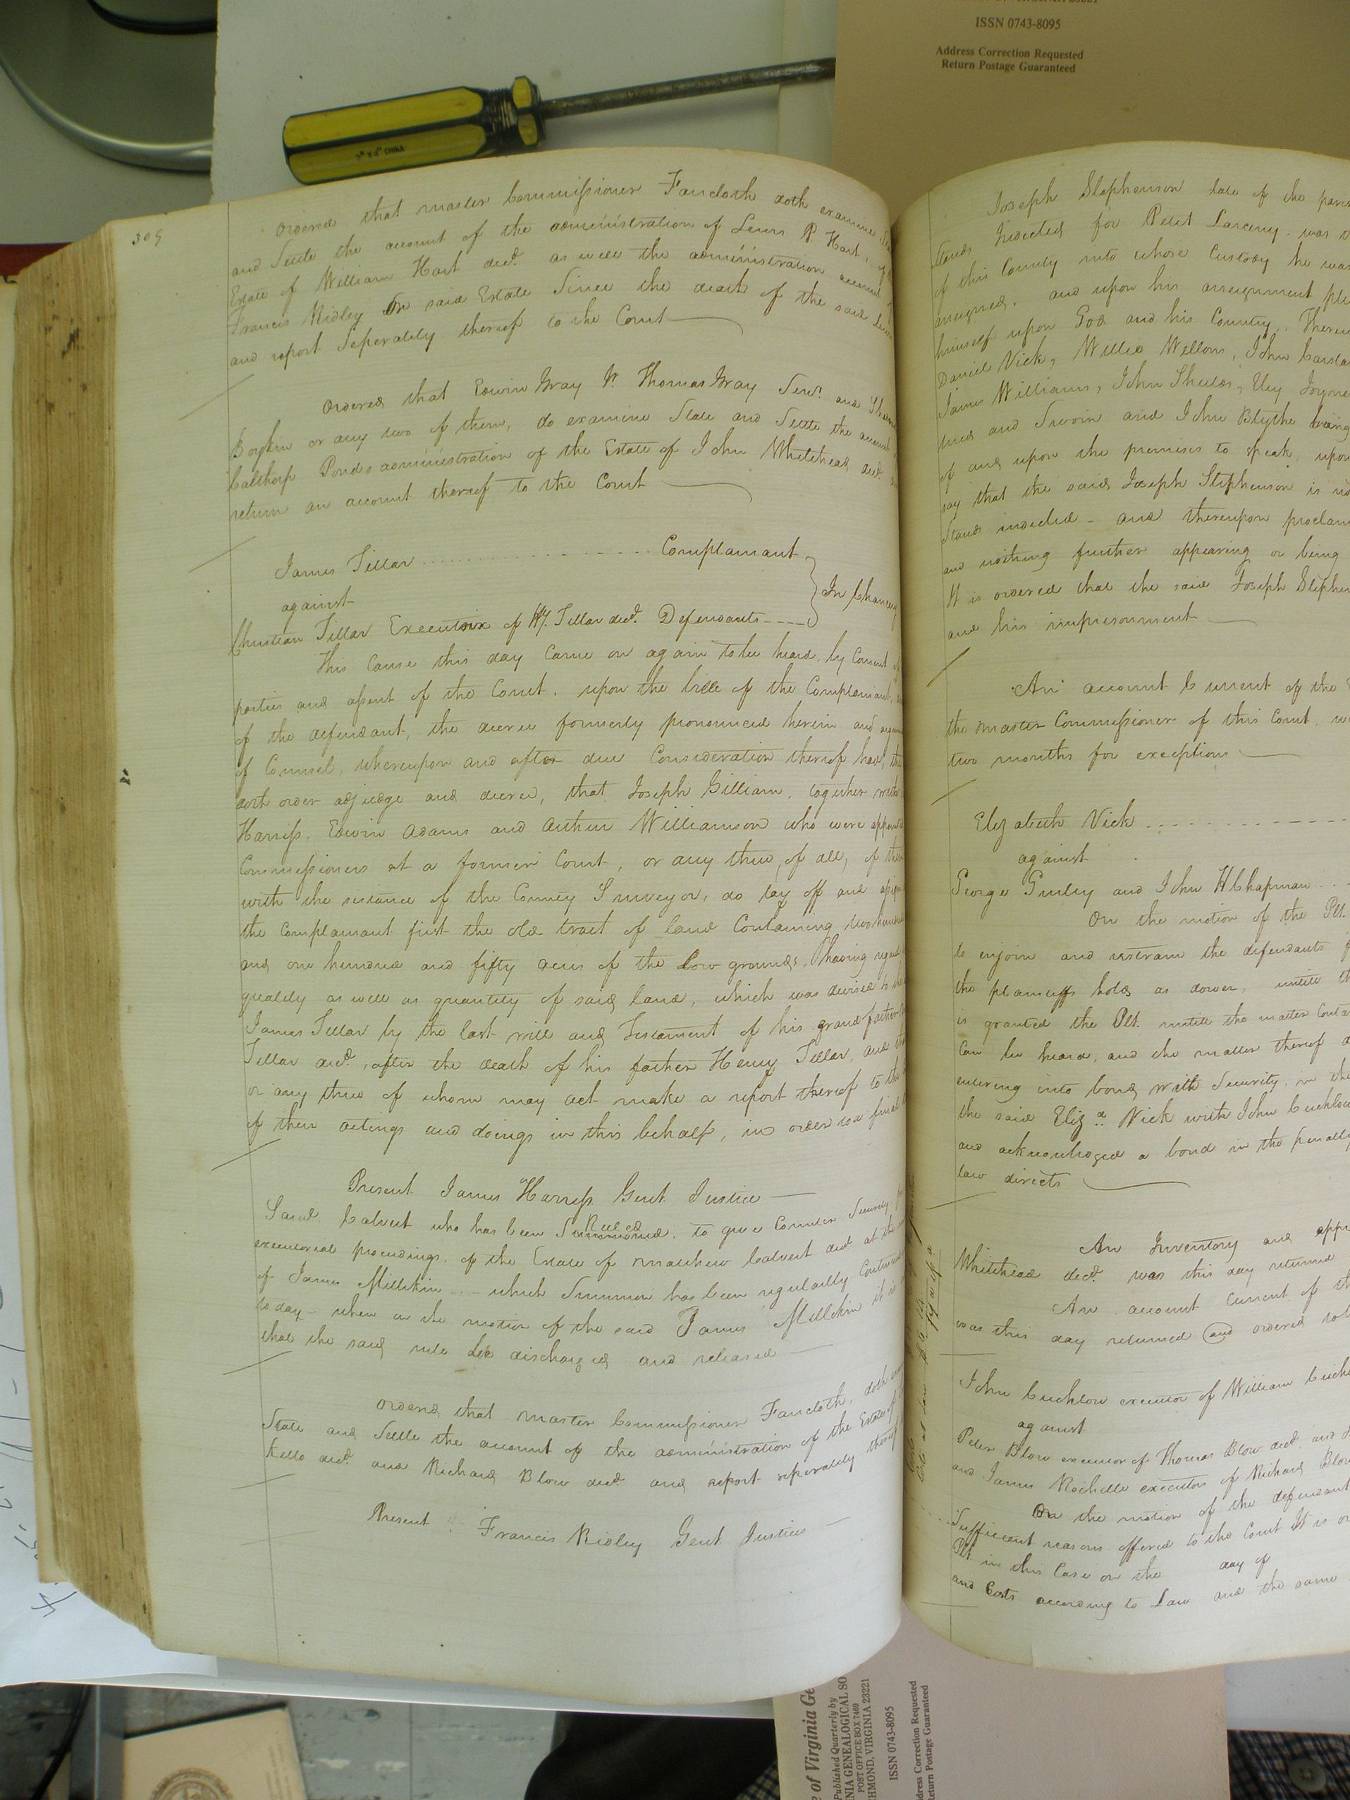 ISSN 0743-8095
Address Correction Requested
Return Postage Guaranteed
CHINA
309
Ordered that master Commissioner Faircloth doth examine
and Settle the account of the administration of Lewis P. Hart, of
Estate of William Hart decd. as well the administration account
Francis Ridley On said Estate Since the death of the said
and report Seperately thereof to the Court
Ordered that Edwin Gray Jr. Thomas Gray Senr. and
Boykin or any two of them, do examine State and Settle the account
Calthorp Ponds administration of the Estate of John Whitehead decd.
return an account thereof to the Court
James Tillar Complainant
against
In Chancery
Christian Tillar Executrix of Tillar decd. Defendants
This cause this day Came on again to be heard, by Consent
parties and assent of the Court, upon the bill of the Complainant,
of the defendant, the decree formerly pronounced herein and
of Counsel, whereupon and after due Consideration thereof had,
doth order adjudge and decree, that Joseph Gilliam, together with
Harriss, Edwin Adams and Arthur Williamson who were
Commissioners at a former Court, or any three, of all, of
with the of the County Surveyor, do lay off and
the Complainant first the old tract of land Containing
and one hundred and fifty acres of the low grounds, having
quality as well as quantity of said land, which was devised to
James Tillar by the last will and Testament of his grandfather
Tillar decd., after the death of his father Henry Tillar, and
or any three of whom may act make a report thereof to the
of their actings and doings in this behalf, in order to a final
Present James Harriss Gent Justice
Ruled
Calvert who has been Summoned, to give Counter Security
executorial proceedings of the Estate of Matthew Calvert decd at the
of James Millikin which Summon has been regularly
to day when on the motion of the said James Millikin it is
that the said rule be discharged and released
Ordered that master Commissioner Faircloth, doth
State and Settle the account of the administration of the Estate of
Kello decd. and Richard Blow decd. and report seperately thereof
Present Francis Ridley Gent Justice
Joseph Stephenson late of the
Stands Indicted for Petit Larceny was
of this County into whose Custody he was
arraigned, and upon his arraignment
himself upon God and his Country, Thereupon
Daniel Vick, Willie Wellons, John
James Williams, John Shields, Eley
tried and Sworn and John Blythe being
of and upon the premises to speak, upon
say that the said Joseph Stephenson is
Stands indicted and thereupon
and nothing further appearing or being
It is ordered that the said Joseph
and his imprisonment
An account Current of the
the master Commissioner of this Court,
two months for exceptions
Elizabeth Vick
against
George Gurley and John H Chapman
On the motion of the Plt.
to enjoin and restrain the defendants
the plaintiff holds as dower, untill
is granted the Plt. untill the matter
Can be heard, and the matter thereof
entering into bond with Security, in the
the said Eliza. Vick with John
and acknowledged a bond in the penalty
law directs
An Inventory and
Whitehead decd. was this day returned
An account Current of
was this day returned and ordered
John executor of William
against
Peter Blow executor of Thomas Blow decd. and
and James Rochelle executor of Richard Blow
On the motion of the defendant
Sufficient reasons offered to the Court It is
Plt in this Case on the day of
and Costs according to Law and the same
of Virginia Ge
Published Quarterly by
NIA GENEALOGICAL SO
POST OFFICE BOX 7469
HMOND, VIRGINIA 23221
ISSN 0743-8095
ddress Correction Requested
Return Postage Guaranteed